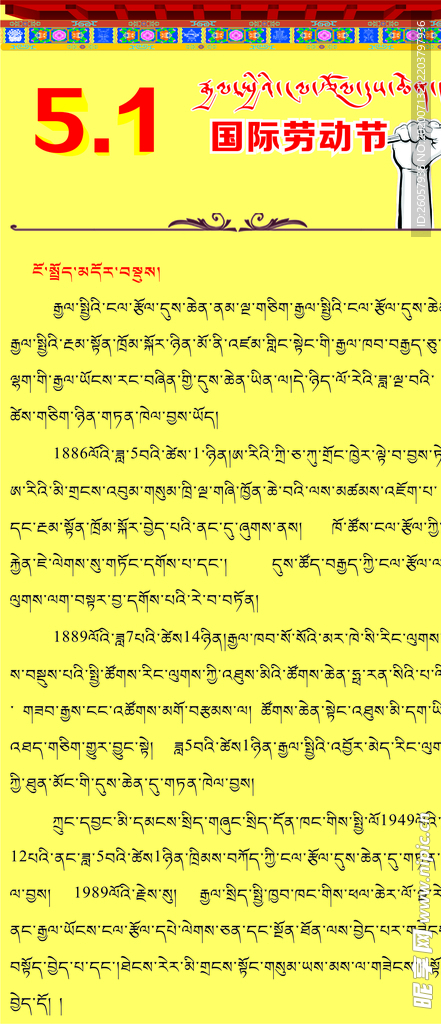 5.1
རྒྱལ་སྤྱིའི་ངལ་རྩོལ་དུས་ཆེན
国际劳动节
ངོ་སྤྲོད་མདོར་བསྡུས།
རྒྱལ་སྤྱིའི་ངལ་རྩོལ་དུས་ཆེན་ནམ་ལྔ་གཅིག་རྒྱལ་སྤྱིའི་ངལ་རྩོལ་དུས་ཆེན
རྒྱལ་སྤྱིའི་རྔམ་སྟོན་ཁྲོམ་སྐོར་ཉིན་མོ་ནི་འཛམ་གླིང་སྟེང་གི་རྒྱལ་ཁབ་བརྒྱད་ཅུ་
ལྷག་གི་རྒྱལ་ཡོངས་རང་བཞིན་གྱི་དུས་ཆེན་ཡིན་ལ།དེ་ཉིད་ལོ་རེའི་ཟླ་ལྔ་བའི་
ཚེས་གཅིག་ཉིན་གཏན་ཁེལ་བྱས་ཡོད།
1886ལོའི་ཟླ་5བའི་ཚེས་1་ཉིན།ཨ་རིའི་ཀྲི་ཅ་ཀུ་གྲོང་ཁྱེར་ལྟེ་བ་བྱས་ཏེ
ཨ་རིའི་མི་གྲངས་འབུམ་གསུམ་ཁྲི་ལྔ་གཞི་ཁྱོན་ཆེ་བའི་ལས་མཚམས་འཇོག་པ་
དང་རྔམ་སྟོན་ཁྲོམ་སྐོར་བྱེད་པའི་ནང་དུ་ཞུགས་ནས། ཁོ་ཚོས་ངལ་རྩོལ་ཀྱི་
རྐྱེན་ཇེ་ལེགས་སུ་གཏོང་དགོས་པ་དང་། དུས་ཚོད་བརྒྱད་ཀྱི་ངལ་རྩོལ་ལ
ལུགས་ལག་བསྟར་བྱ་དགོས་པའི་རེ་བ་བཏོན།
1889ལོའི་ཟླ7པའི་ཚེས14ཉིན།རྒྱལ་ཁབ་སོ་སོའི་མར་ཁེ་སི་རིང་ལུགས
ས་བསྡུས་པའི་སྤྱི་ཚོགས་རིང་ལུགས་ཀྱི་འཐུས་མིའི་ཚོགས་ཆེན་ཧྥ་རན་སིའི་པ་ལི
་ གཟབ་རྒྱས་ངང་འཚོགས་མགོ་བརྩམས་ལ། ཚོགས་ཆེན་སྟེང་འཐུས་མི་དག་ཡི
འཐད་གཅིག་གྱུར་བྱུང་སྟེ། ཟླ5བའི་ཚེས1ཉིན་རྒྱལ་སྤྱིའི་འབྱོར་མེད་རིང་ལུག
ཀྱི་ཐུན་མོང་གི་དུས་ཆེན་དུ་གཏན་ཁེལ་བྱས།
ཀྲུང་དབྱང་མི་དམངས་སྲིད་གཞུང་སྲིད་དོན་ཁང་གིས་སྤྱི་ལོ1949ལོའི་
12པའི་ནང་ཟླ་5བའི་ཚེས1ཉིན་ཁྲིམས་བཀོད་ཀྱི་ངལ་རྩོལ་དུས་ཆེན་དུ་གཏན་
ལ་བྱས། 1989ལོའི་རྗེས་སུ། རྒྱལ་སྲིད་སྤྱི་ཁྱབ་ཁང་གིས་ཕལ་ཆེར་ལོ་ལྔ་རེ
ནང་རྒྱལ་ཡོངས་ངལ་རྩོལ་དཔེ་ལེགས་ཅན་དང་སྔོན་ཐོན་ལས་བྱེད་པར་གཟེངས
བསྟོད་བྱེད་པ་དང་།ཐེངས་རེར་མི་གྲངས་སྟོང་གསུམ་ཡས་མས་ལ་གཟེངས་བསྟོ
བྱེད་དོ། །
昵享网 www.nipic.cn